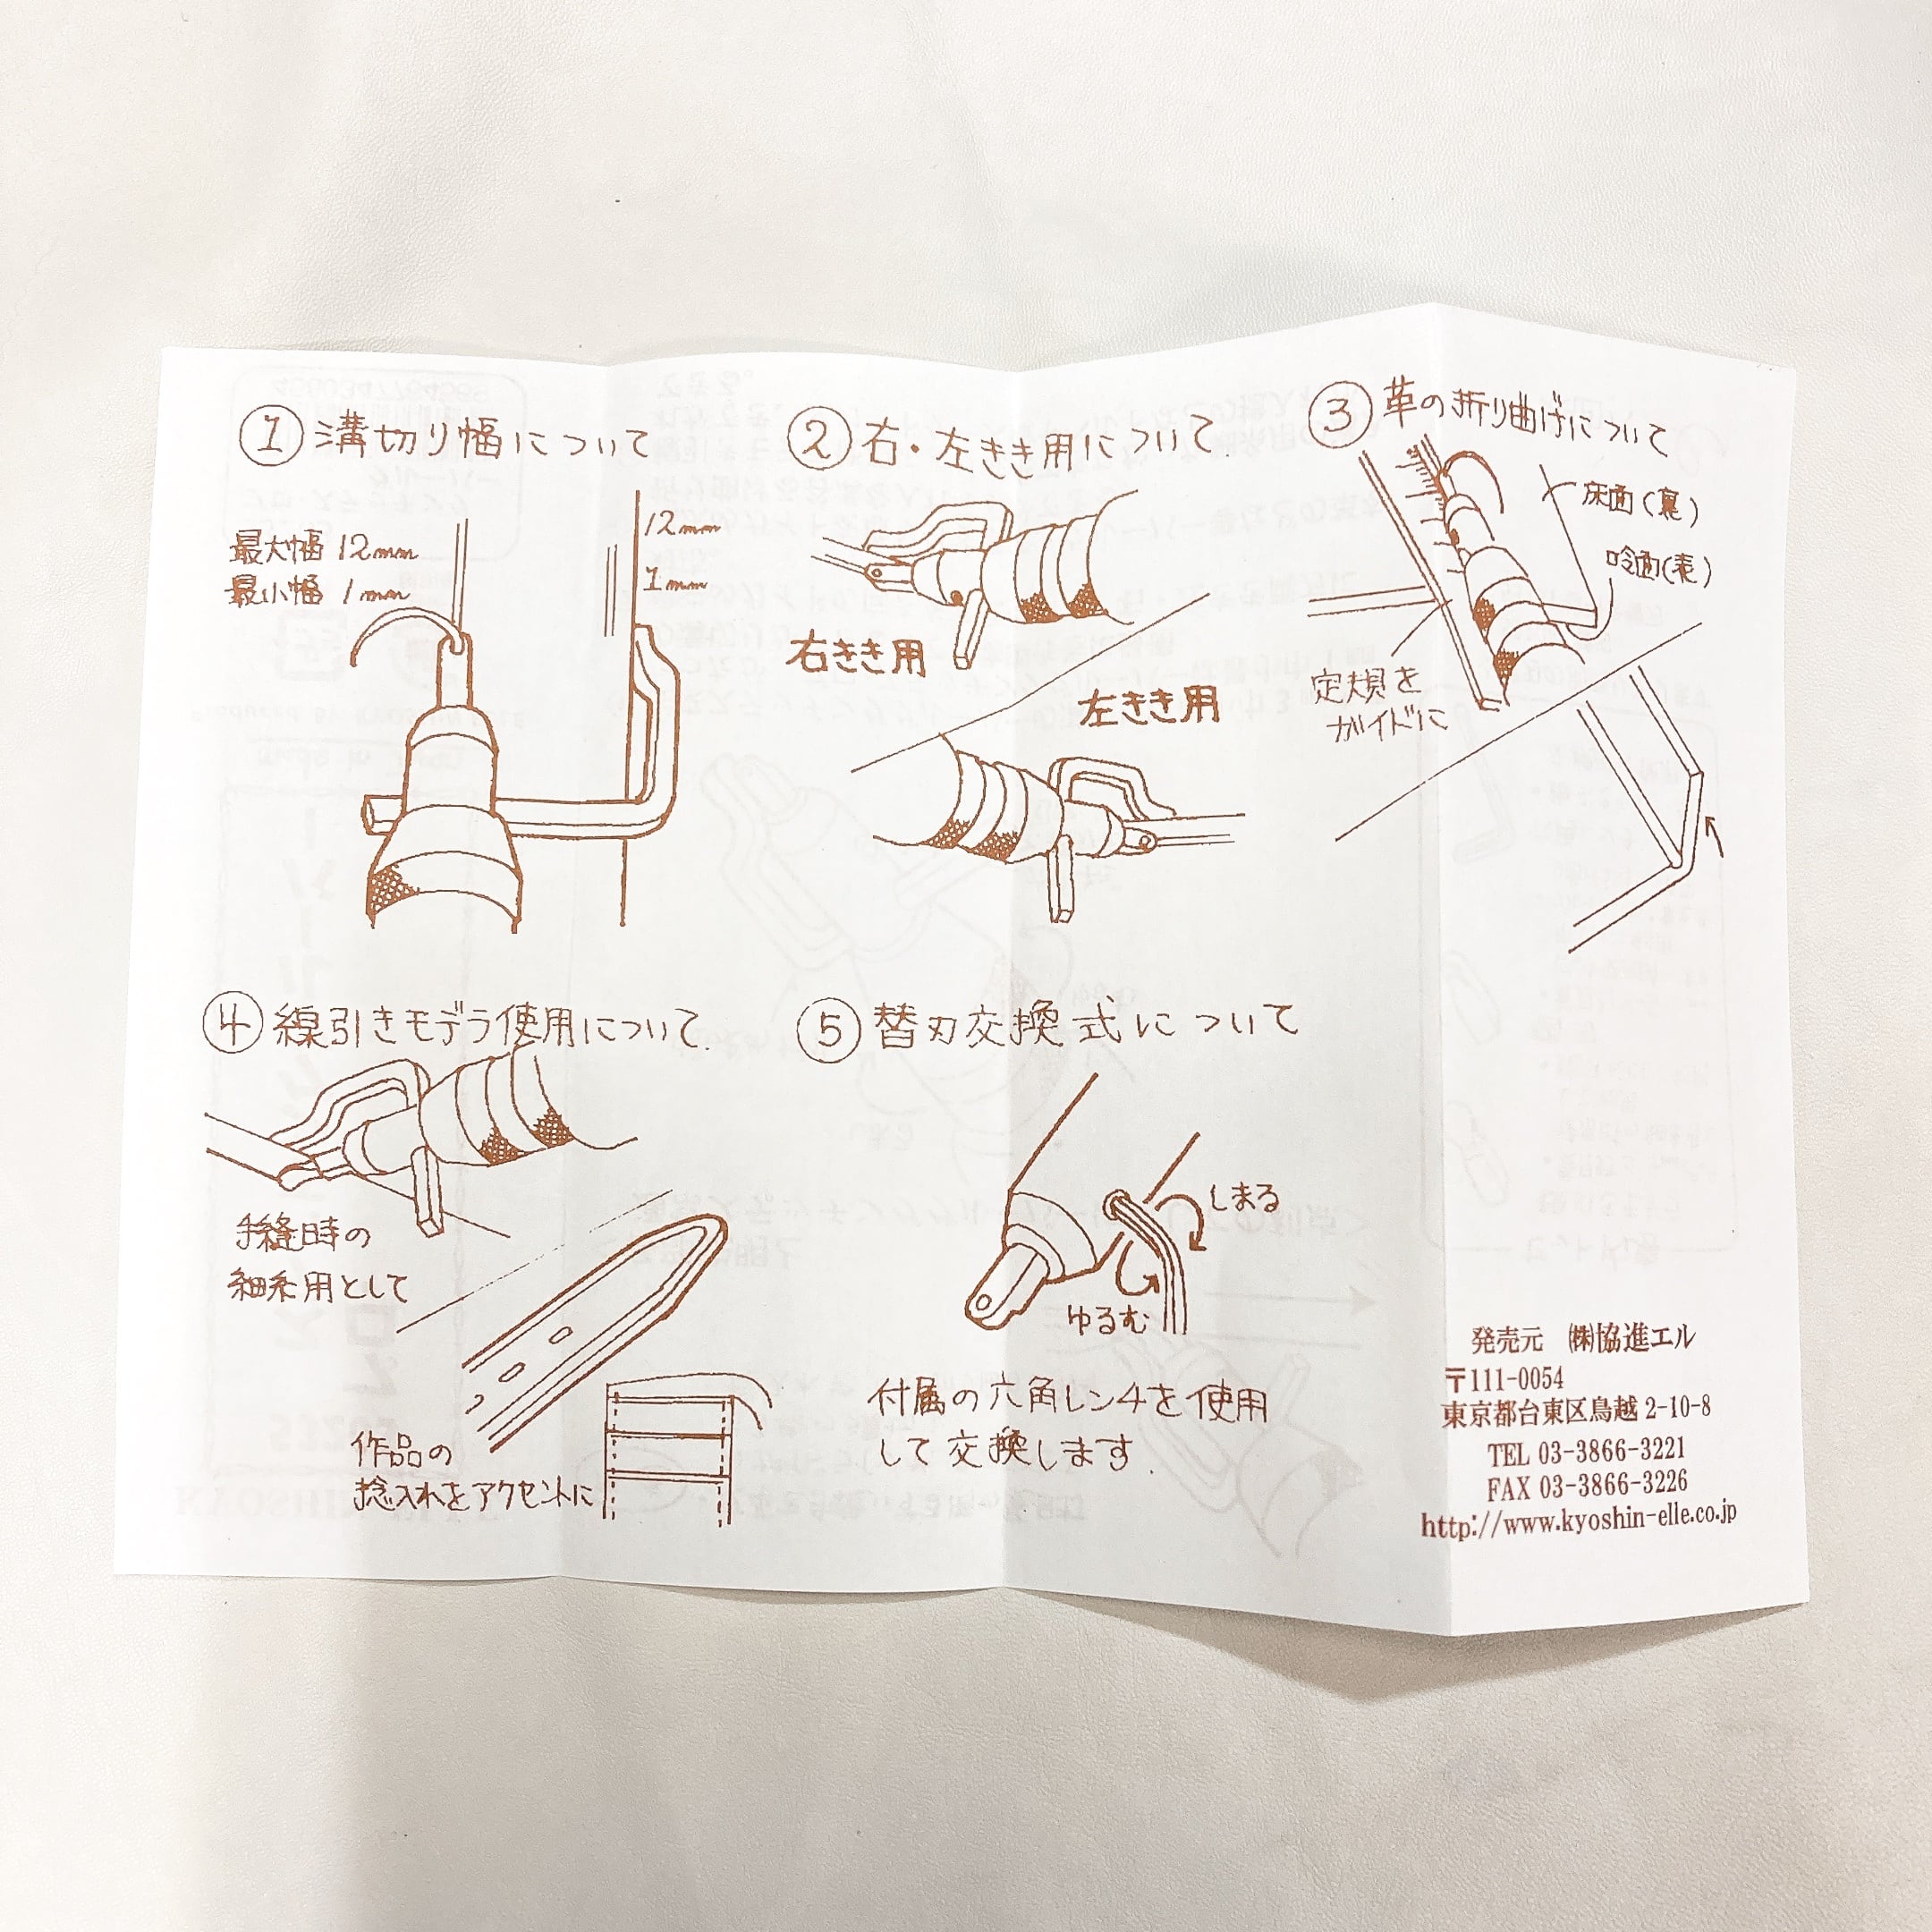 ① 溝切り幅について
最大幅 12mm
最小幅 1mm
12mm
1mm
② 右・左きき用について.
右きき用
左きき用
③ 革の折り曲げについて
床面(裏)
吟面(表)
定規を
ガイドに
④ 線引きモデラ使用について.
手縫時の
細糸用として
作品の
捻入れをアクセントに
⑤ 替刃交換式について
しまる
ゆるむ
付属の六角レンチを使用
して交換します.
発売元 ㈱協進エル
〒111-0054
東京都台東区鳥越 2-10-8
TEL 03-3866-3221
FAX 03-3866-3226
http://www.kyoshin-elle.co.jp